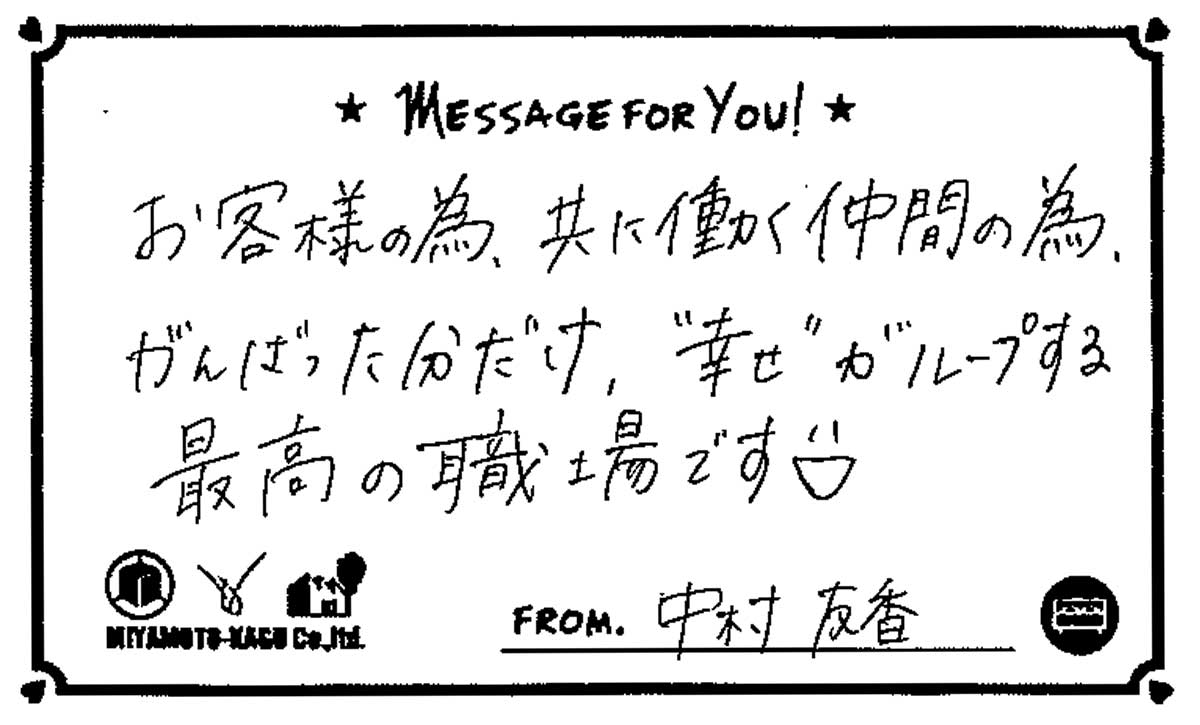 ★ MESSAGE FOR YOU! ★
お客様の為、共に働く仲間の為、
がんばった分だけ、"幸せ"がループする
最高の職場です
MIYAMOTO-KAGU Co.,ltd.
FROM. 中村 友香